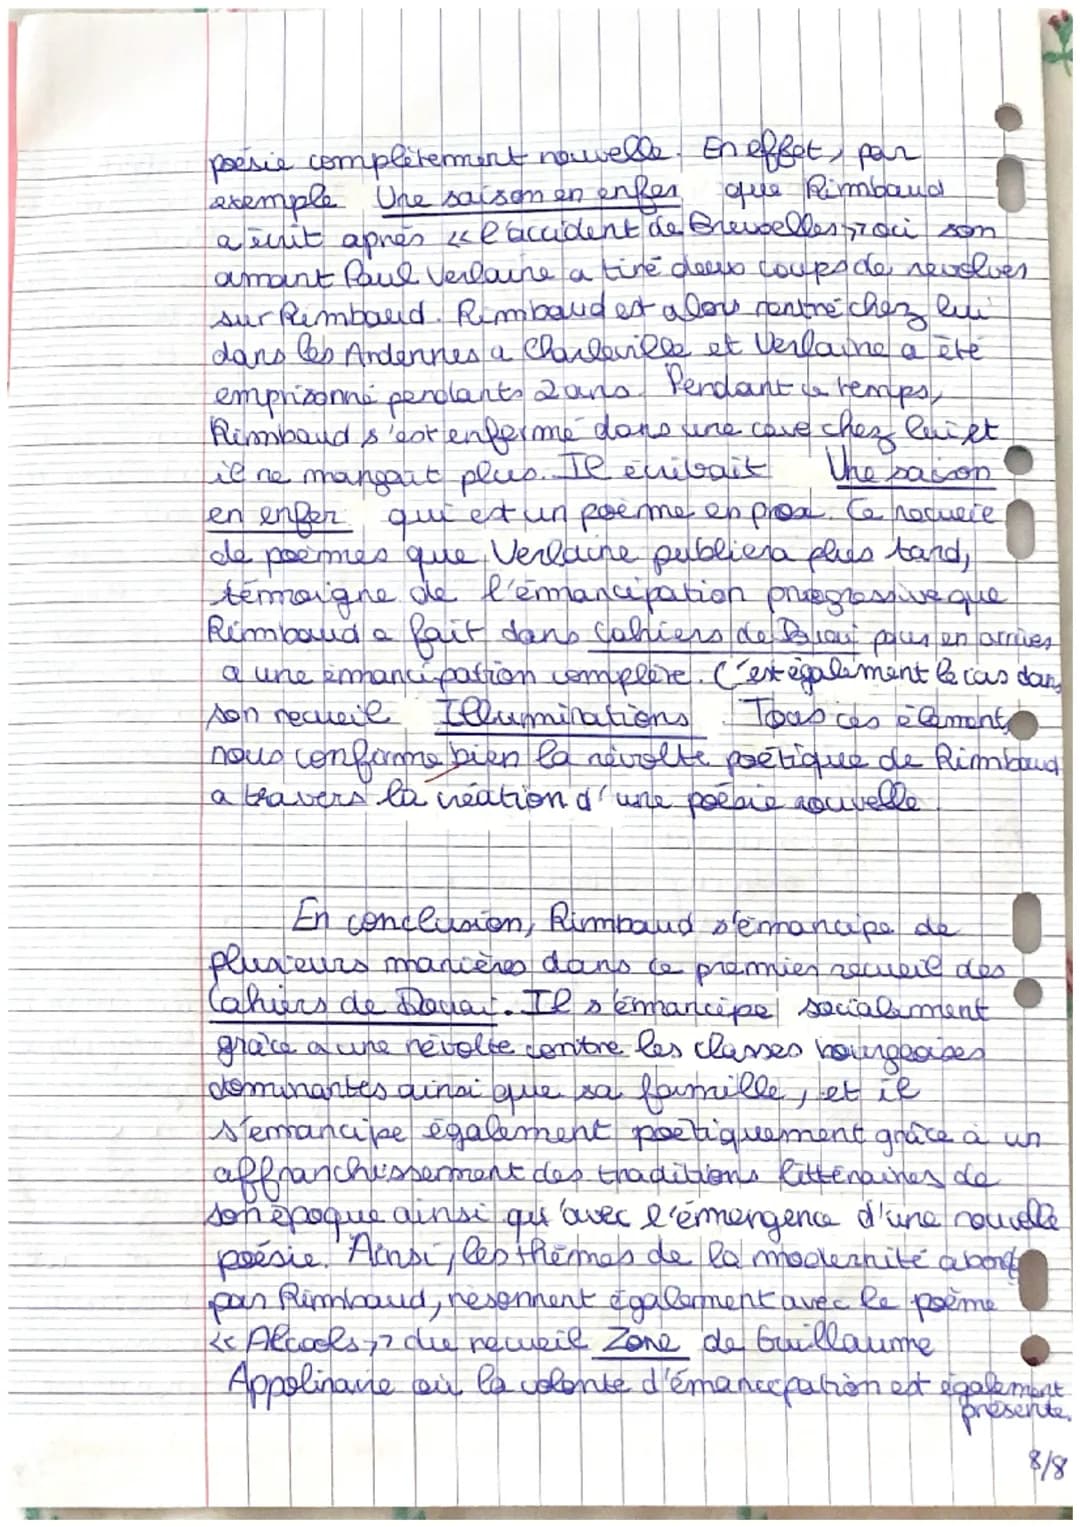 poésie complètement nouvelle. En effet, par
exemple Une saison en enfer que Rimbaud
a écrit après « l'accident de Bruxelles » où son
amant Paul Verlaine a tiré deux coups de revolver
sur Rimbaud. Rimbaud est alors rentré chez lui
dans les Ardennes a Charleville et Verlaine a été
emprizonné pendants 2 ans. Pendant ce temps,
Rimbaud s'est enfermé dans une cave chez lui et
il ne mangait plus. Il écribait Une saison
en enfer qui est un poème en prose. Ce recueie
de poèmes que Verlaine publiera plus tard,
témoigne de l'émancipation progressive que
Rimbaud a fait dans Cahiers de Douai pour en arriver
a une émancipation complère. C'est également le cas dans
son recueil Illuminations. Tous ces élements
nous conforme bien la révolte poétique de Rimbaud
a travers la création d'une poésie nouvelle.
En conclusion, Rimbaud s'émancipe de
plusieurs manières dans ce premier recueil des
Cahiers de Douai. Il s'émancipe socialement
grâce a une révolte contre les classes bourgeoises
dominantes ainsi que sa famille, et il
s'emancipe également poétiquement grâce à un
affranchissement des traditions littéraires de
son époque ainsi qu'avec l'émergence d'une nouvelle
poésie. Ainsi, les thèmes de la modernité abord
par Rimbaud, résonnent également avec le poème
« Alcools » du recueil Zone de Guillaume
Appolinaire où la volonté d'émancipation est également
présente.
8/8